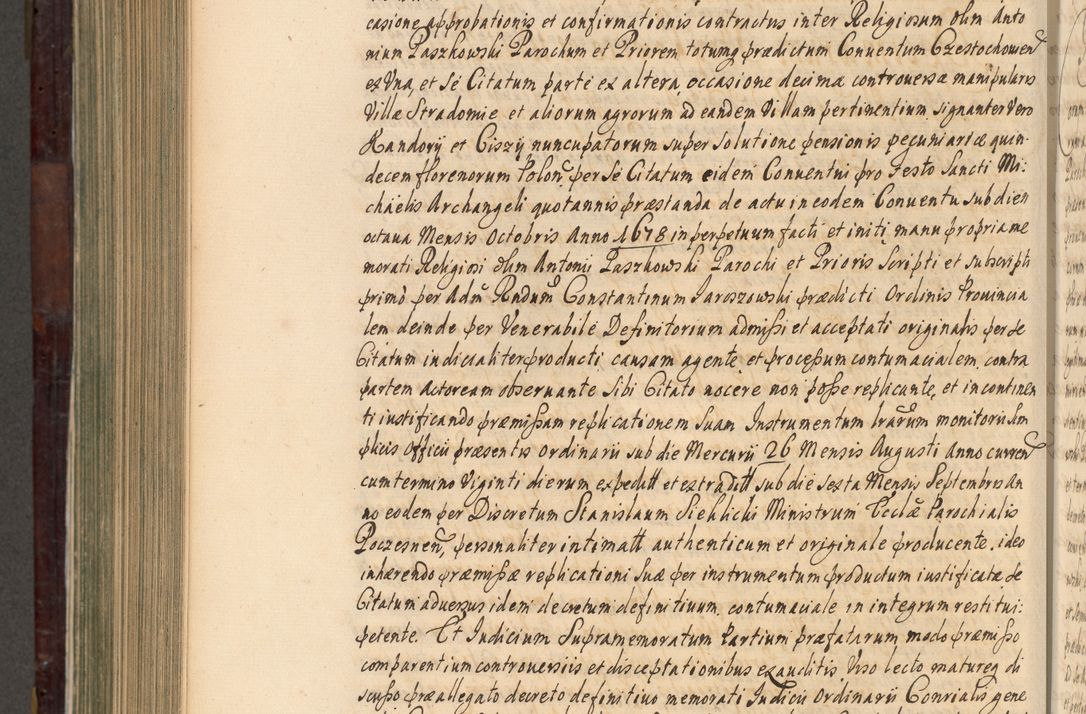 casione approbationis et confirmationis contractus inter Religiosum olim Anto
nium Paszkowski Parochum et Priorem totumq prædictum Conuentum Czestochouien
ex Vna, et Se Citatum parte ex altera, occasione decimæ controuersæ manipularis
Villæ Stradomie et aliorum agrorum ad eandem Villam pertinentium, signanter Vero
Kandory et Ciszy nuncupatorum super Solutione pensionis pecuniariæ quin-
decem florenorum Polon per Se Citatum eidem Conuentui pro Festo Sancti Mi:
chaelis Archangeli quotannis præstanda de actu in eodem Conuentu sub dien
octaua Mensis Octobris Anno 1678 in perpetuum facti et initi manu propria me
morati Religiosi olim Antonii Paszkowski Parochi et Prioris Scripti et subscripti
primo per Adm Rndum Constantinum Jaroszowski prædicti Ordinis Prouincia
lem deinde per Venerabile Definitorium admissi et acceptati originalis per se
Citatum iudicialiter producti, causam agente, et processum contumacialem contra
partem actoream obseruante Sibi Citato nocere non posse replicante, et incontinen
ti iustificando præmissam replicationem Suam Instrumentum lrarum monitorii sim
plicis Officii præsentis ordinarii sub die Mercurii 26 Mensis Augusti Anno curren
cum termino Viginti dierum expeditt et extraditt sub die sexta Mensis Septembris An
no eodem per Discretum Stanislaum Siehlicki Ministrum Ecclæ Parochialis
Poczesnen, personaliter intimatt authenticum et originale producente, ideo
inhærendo præmissæ replicationi Suæ per instrumentum productum iustificatæ se
Citatum aduersus idem decretum definitiuum contumaciale in integrum restitui:
petente. Et Iudicium Supramemoratum Partium præfatarum modo præmisso
comparentium controuersiis et disceptationibus exauditis Viso lecto matureq di
scusso præallegato decreto definitiuo memorati Iudicii Ordinarii Conrialis gene